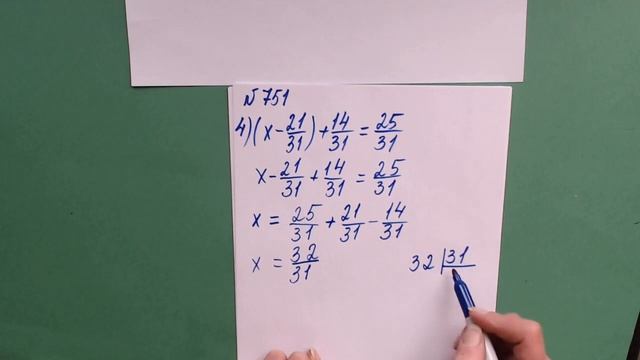 №751
4) (x - 21/31) + 14/31 = 25/31
x - 21/31 + 14/31 = 25/31
x = 25/31 + 21/31 - 14/31
x = 32/31
32 | 31